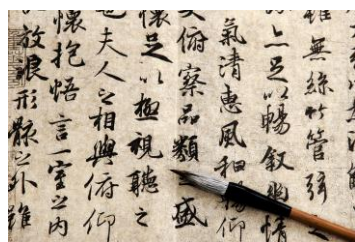 無絲竹管弦之
亦足以暢敘幽情
氣清惠風和暢仰
俯察品類盛
懷足以極視聽之
也夫人之相與俯仰
懷抱悟言一室之內
放浪形骸之外雖